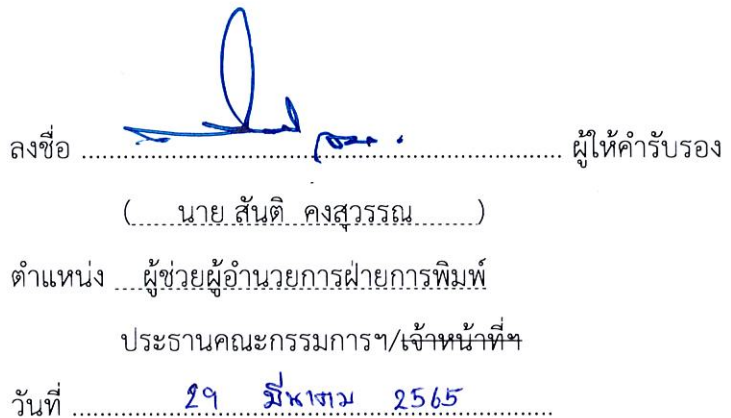 ลงชื่อ ........................................................ ผู้ให้คำรับรอง
(.......นาย สันติ คงสุวรรณ.......)
ตำแหน่ง ....ผู้ช่วยผู้อำนวยการฝ่ายการพิมพ์
ประธานคณะกรรมการฯ/เจ้าหน้าที่ฯ
วันที่ ................29 มีนาคม 2565................